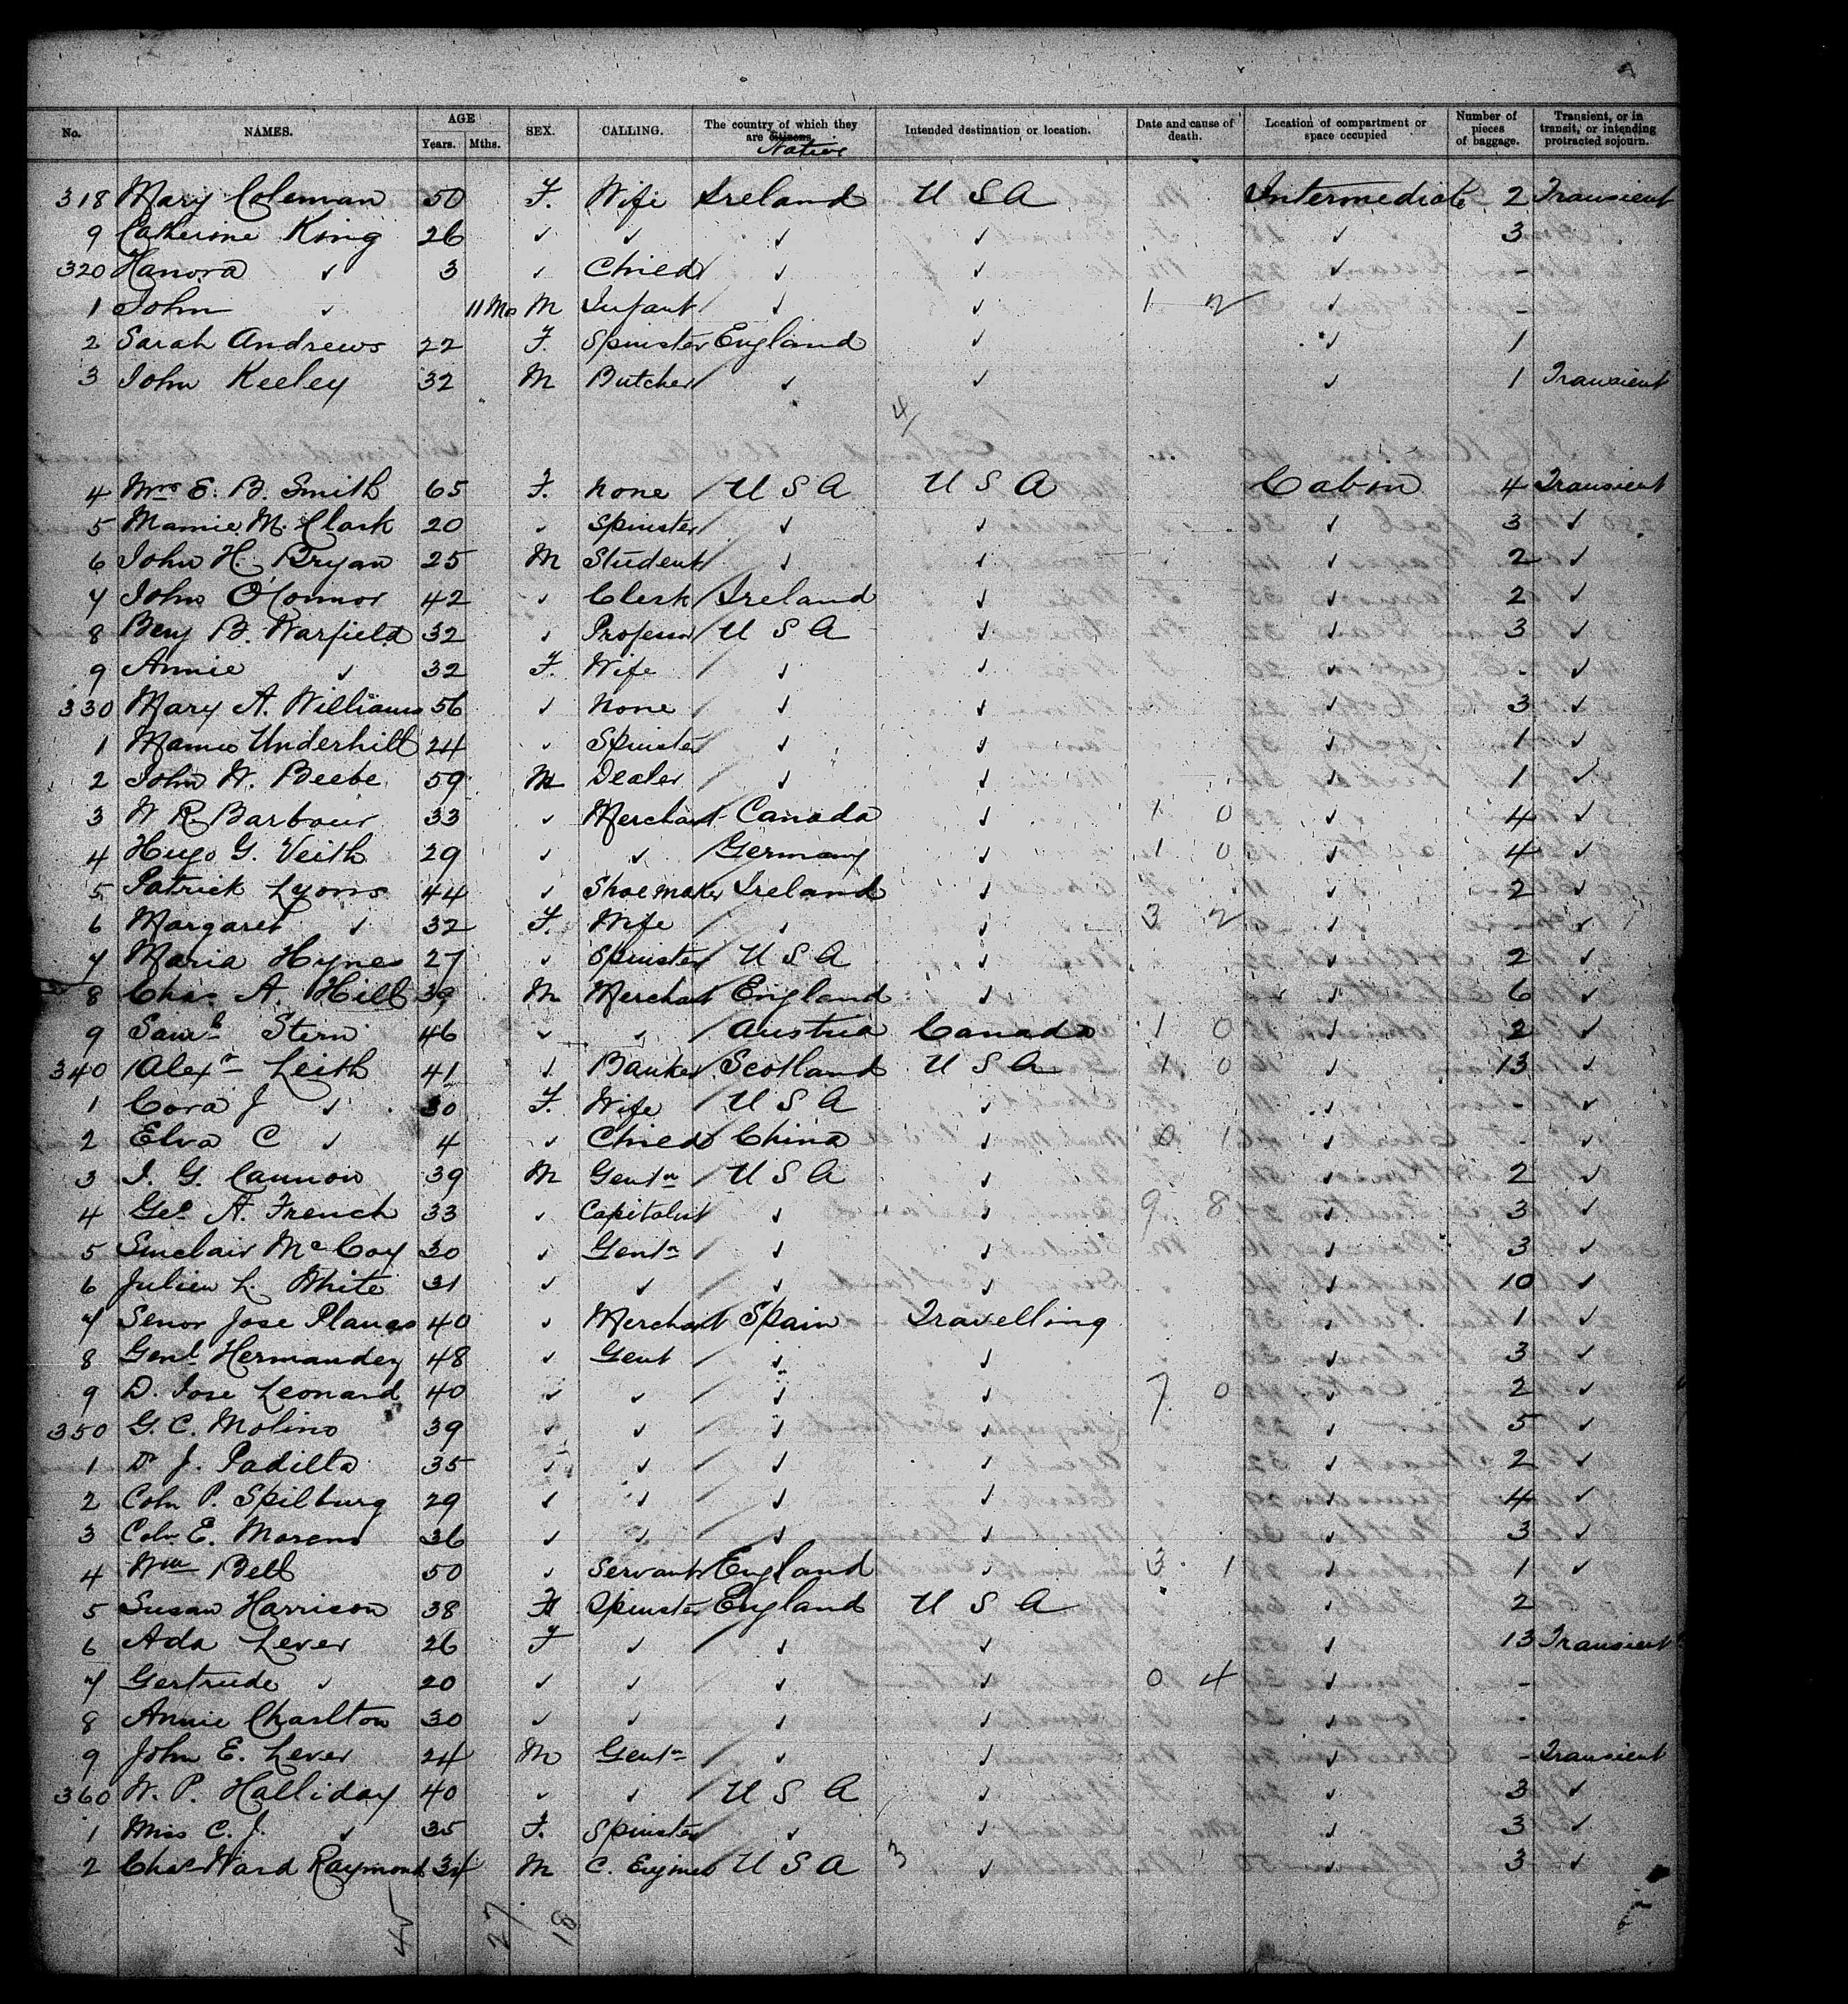 No. NAMES. AGE Years. Mths. SEX. CALLING. The country of which they are citizens Native Intended destination or location. Date and cause of death. Location of compartment or space occupied Number of pieces of baggage. Transient, or in transit, or intending protracted sojourn.
318 Mary Coleman 50 F. Wife Ireland U S A Intermediate 2 Transient
9 Catherine King 26 ✓ ✓ ✓ ✓ ✓ 3
320 Hanora ✓ 3 ✓ Child ✓ ✓ ✓ -
1 John ✓ 11 Mos M Infant ✓ ✓ 1 2 ✓ -
2 Sarah Andrews 22 F. Spinster England ✓ ✓ 1
3 John Keeley 32 M Butcher ✓ ✓ ✓ 1 Transient
4/
4 Mrs E. B. Smith 65 F. None U S A U S A Cabin 4 Transient
5 Mamie M. Clark 20 ✓ Spinster ✓ ✓ ✓ 3 ✓
6 John H. Bryan 25 M Student ✓ ✓ ✓ 2 ✓
7 John O'Connor 42 ✓ Clerk Ireland ✓ ✓ 2 ✓
8 Benj B. Warfield 32 ✓ Professor U S A ✓ ✓ 3 ✓
9 Annie ✓ 32 F. Wife ✓ ✓ ✓ - ✓
330 Mary A. Williams 56 ✓ None ✓ ✓ ✓ 3 ✓
1 Mamie Underhill 24 ✓ Spinster ✓ ✓ ✓ 1 ✓
2 John W. Beebe 59 M Dealer ✓ ✓ ✓ 1 ✓
3 W R Barbour 33 ✓ Merchant Canada ✓ 1 0 ✓ 4 ✓
4 Hugo G. Veith 29 ✓ ✓ Germany ✓ 1 0 ✓ 4 ✓
5 Patrick Lyons 44 ✓ Shoemaker Ireland ✓ ✓ 2 ✓
6 Margaret ✓ 32 F. Wife ✓ ✓ 3 2 ✓ - ✓
7 Maria Hynes 27 ✓ Spinster U S A ✓ ✓ 2 ✓
8 Chas. A. Hill 39 M Merchant England ✓ ✓ 6 ✓
9 Saml Stern 46 ✓ ✓ Austria Canada 1 0 ✓ 2 ✓
340 Alexr Leith 41 ✓ Banker Scotland U S A 1 0 ✓ 13 ✓
1 Cora J ✓ 30 F. Wife U S A ✓ ✓ - ✓
2 Elva C ✓ 4 ✓ Child China ✓ 0 1 ✓ - ✓
3 J. G. Cannon 39 M Gentn U S A ✓ ✓ 2 ✓
4 Geo A. French 33 ✓ Capitalist ✓ ✓ 9 8 ✓ 3 ✓
5 Sinclair McCoy 30 ✓ Gentn ✓ ✓ ✓ 3 ✓
6 Julien L. White 31 ✓ ✓ ✓ ✓ ✓ 10 ✓
7 Senor Jose Planas 40 ✓ Merchant Spain Travelling ✓ 1 ✓
8 Genl Hermandez 48 ✓ Gent ✓ ✓ ✓ 3 ✓
9 D. Jose Leonard 40 ✓ ✓ ✓ ✓ 7 0 ✓ 2 ✓
350 G. C. Molino 39 ✓ ✓ ✓ ✓ ✓ 5 ✓
1 Dr J. Padilla 35 ✓ ✓ ✓ ✓ ✓ 2 ✓
2 Coln P. Spilburg 29 ✓ ✓ ✓ ✓ ✓ 4 ✓
3 Coln E. Moreno 36 ✓ ✓ ✓ ✓ ✓ 3 ✓
4 Wm Bell 50 ✓ Servant England ✓ 3 1 ✓ 1 ✓
5 Susan Harrison 38 F Spinster England U S A ✓ 2
6 Ada Lever 26 F ✓ ✓ ✓ ✓ 13 Transient
7 Gertrude ✓ 20 ✓ ✓ ✓ ✓ 0 4 ✓ -
8 Annie Charlton 30 ✓ ✓ ✓ ✓ ✓
9 John E. Lever 24 M Gentn ✓ ✓ ✓ - Transient
360 W. P. Halliday 40 ✓ ✓ U S A ✓ ✓ 3 ✓
1 Miss C. J. ✓ 35 F. Spinster ✓ ✓ ✓ 3 ✓
2 Chas Ward Raymond 34 M C. Engineer U S A 3 ✓ ✓ 3 ✓
45 27 18